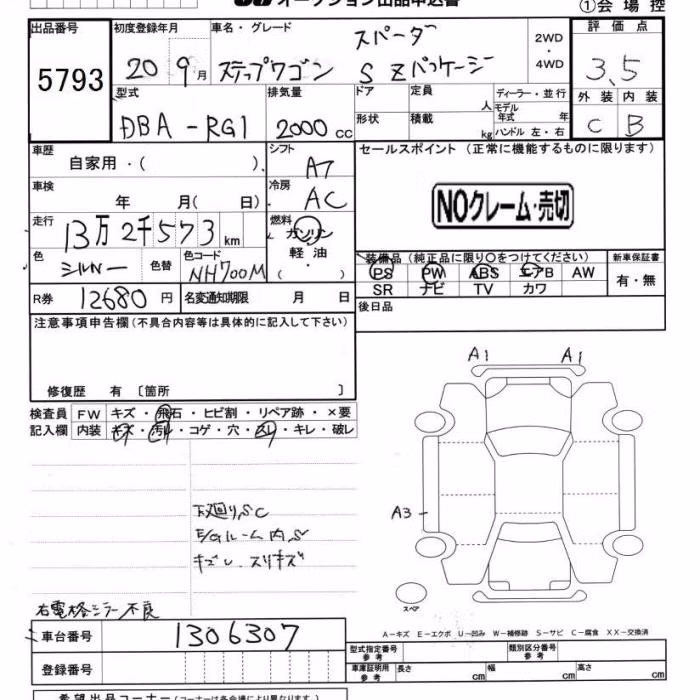 オークション出品申込書
①会場控
出品番号 初度登録年月 車名・グレード 評価点
5793 20 9月 ステップワゴン スパーダ S Zパッケージ 2WD・4WD 3.5
型式 排気量 ドア 定員 人 ディーラー・並行 外装 内装
DBA-RG1 2000cc 形状 積載 kg モデル年式 年 ハンドル 左・右 C B
車歴 シフト セールスポイント (正常に機能するものに限ります)
自家用・( ) A7
車検 冷房
年 月( 日) AC NOクレーム・売切
走行 燃料
13万2千573km ガソリン・軽油・( )
色 色替 色コード 装備品 (純正品に限り○をつけてください) 新車保証書
シルバー NH700M PS PW ABS エアB AW 有・無
SR ナビ TV カワ
R券 12680円 名変通知期限 月 日 後日品
注意事項申告欄(不具合内容等は具体的に記入して下さい)
修復歴 有〔箇所 〕
A1 A1
検査員 FW キズ・飛石・ヒビ割・リペア跡・×要
記入欄 内装 キズ・汚れ・コゲ・穴・スレ・キレ・破レ
A3
下廻りSC
内S
キズ スリキズ
スペア
右電格ミラー不良
A-キズ E-エクボ U-凹み W-補修跡 S-サビ C-腐食 XX-交換済
車台番号 1306307
型式指定番号 参考 類別区分番号 参考
登録番号 車庫証明用 参考 長さ cm 幅 cm 高さ cm
希望出品コーナー(コーナーは各会場により異なります。)